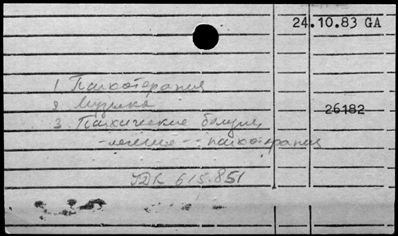 24.10.83 GA
1 Психотерапия
2 Музыка
26182
3. Психические болезни,
-лечение -- психотерапия
UDK 615.851